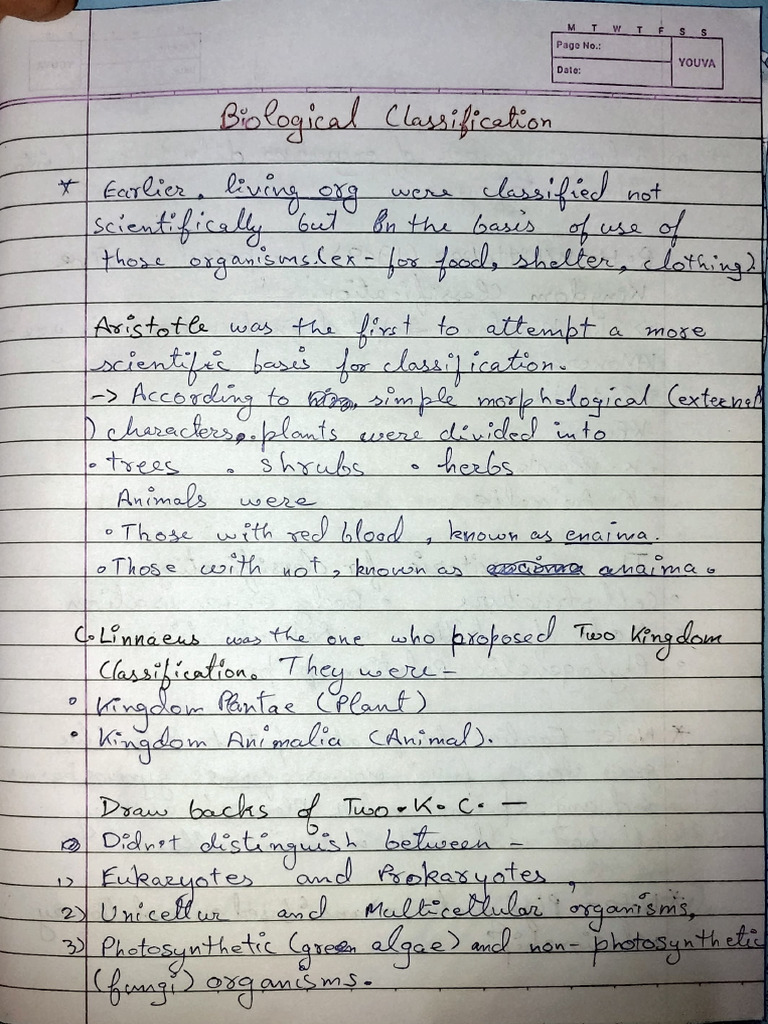 M T W T F S S
Page No.:
Date:
YOUVA
Biological Classification
* Earlier, living org were classified not
scientifically but on the basis of use of
those organisms (ex - for food, shelter, clothing)
Aristotle was the first to attempt a more
scientific basis for classification.
-> According to simple morphological (external
) characters, plants were divided into
• trees • shrubs • herbs
Animals were
• Those with red blood, known as enaima.
• Those with not, known as anaima.
C. Linnaeus was the one who proposed Two Kingdom
Classification. They were -
• Kingdom Plantae (Plant)
• Kingdom Animalia (Animal).
Draw backs of Two.K.C. -
Didnot distinguish between -
1) Eukaryotes and Prokaryotes,
2) Unicellur and Multicellular organisms,
3) Photosynthetic (green algae) and non-photosynthetic
(fungi) organisms.